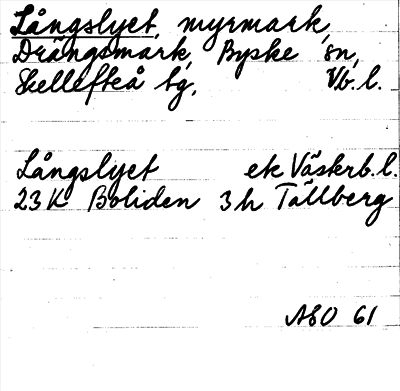 Långslyet, myrmark,
Drängsmark, Byske sn,
Skellefteå tg, Vb.l.
Långslyet ek Västerb.l.
23K Boliden 3h Tällberg
ASO 61